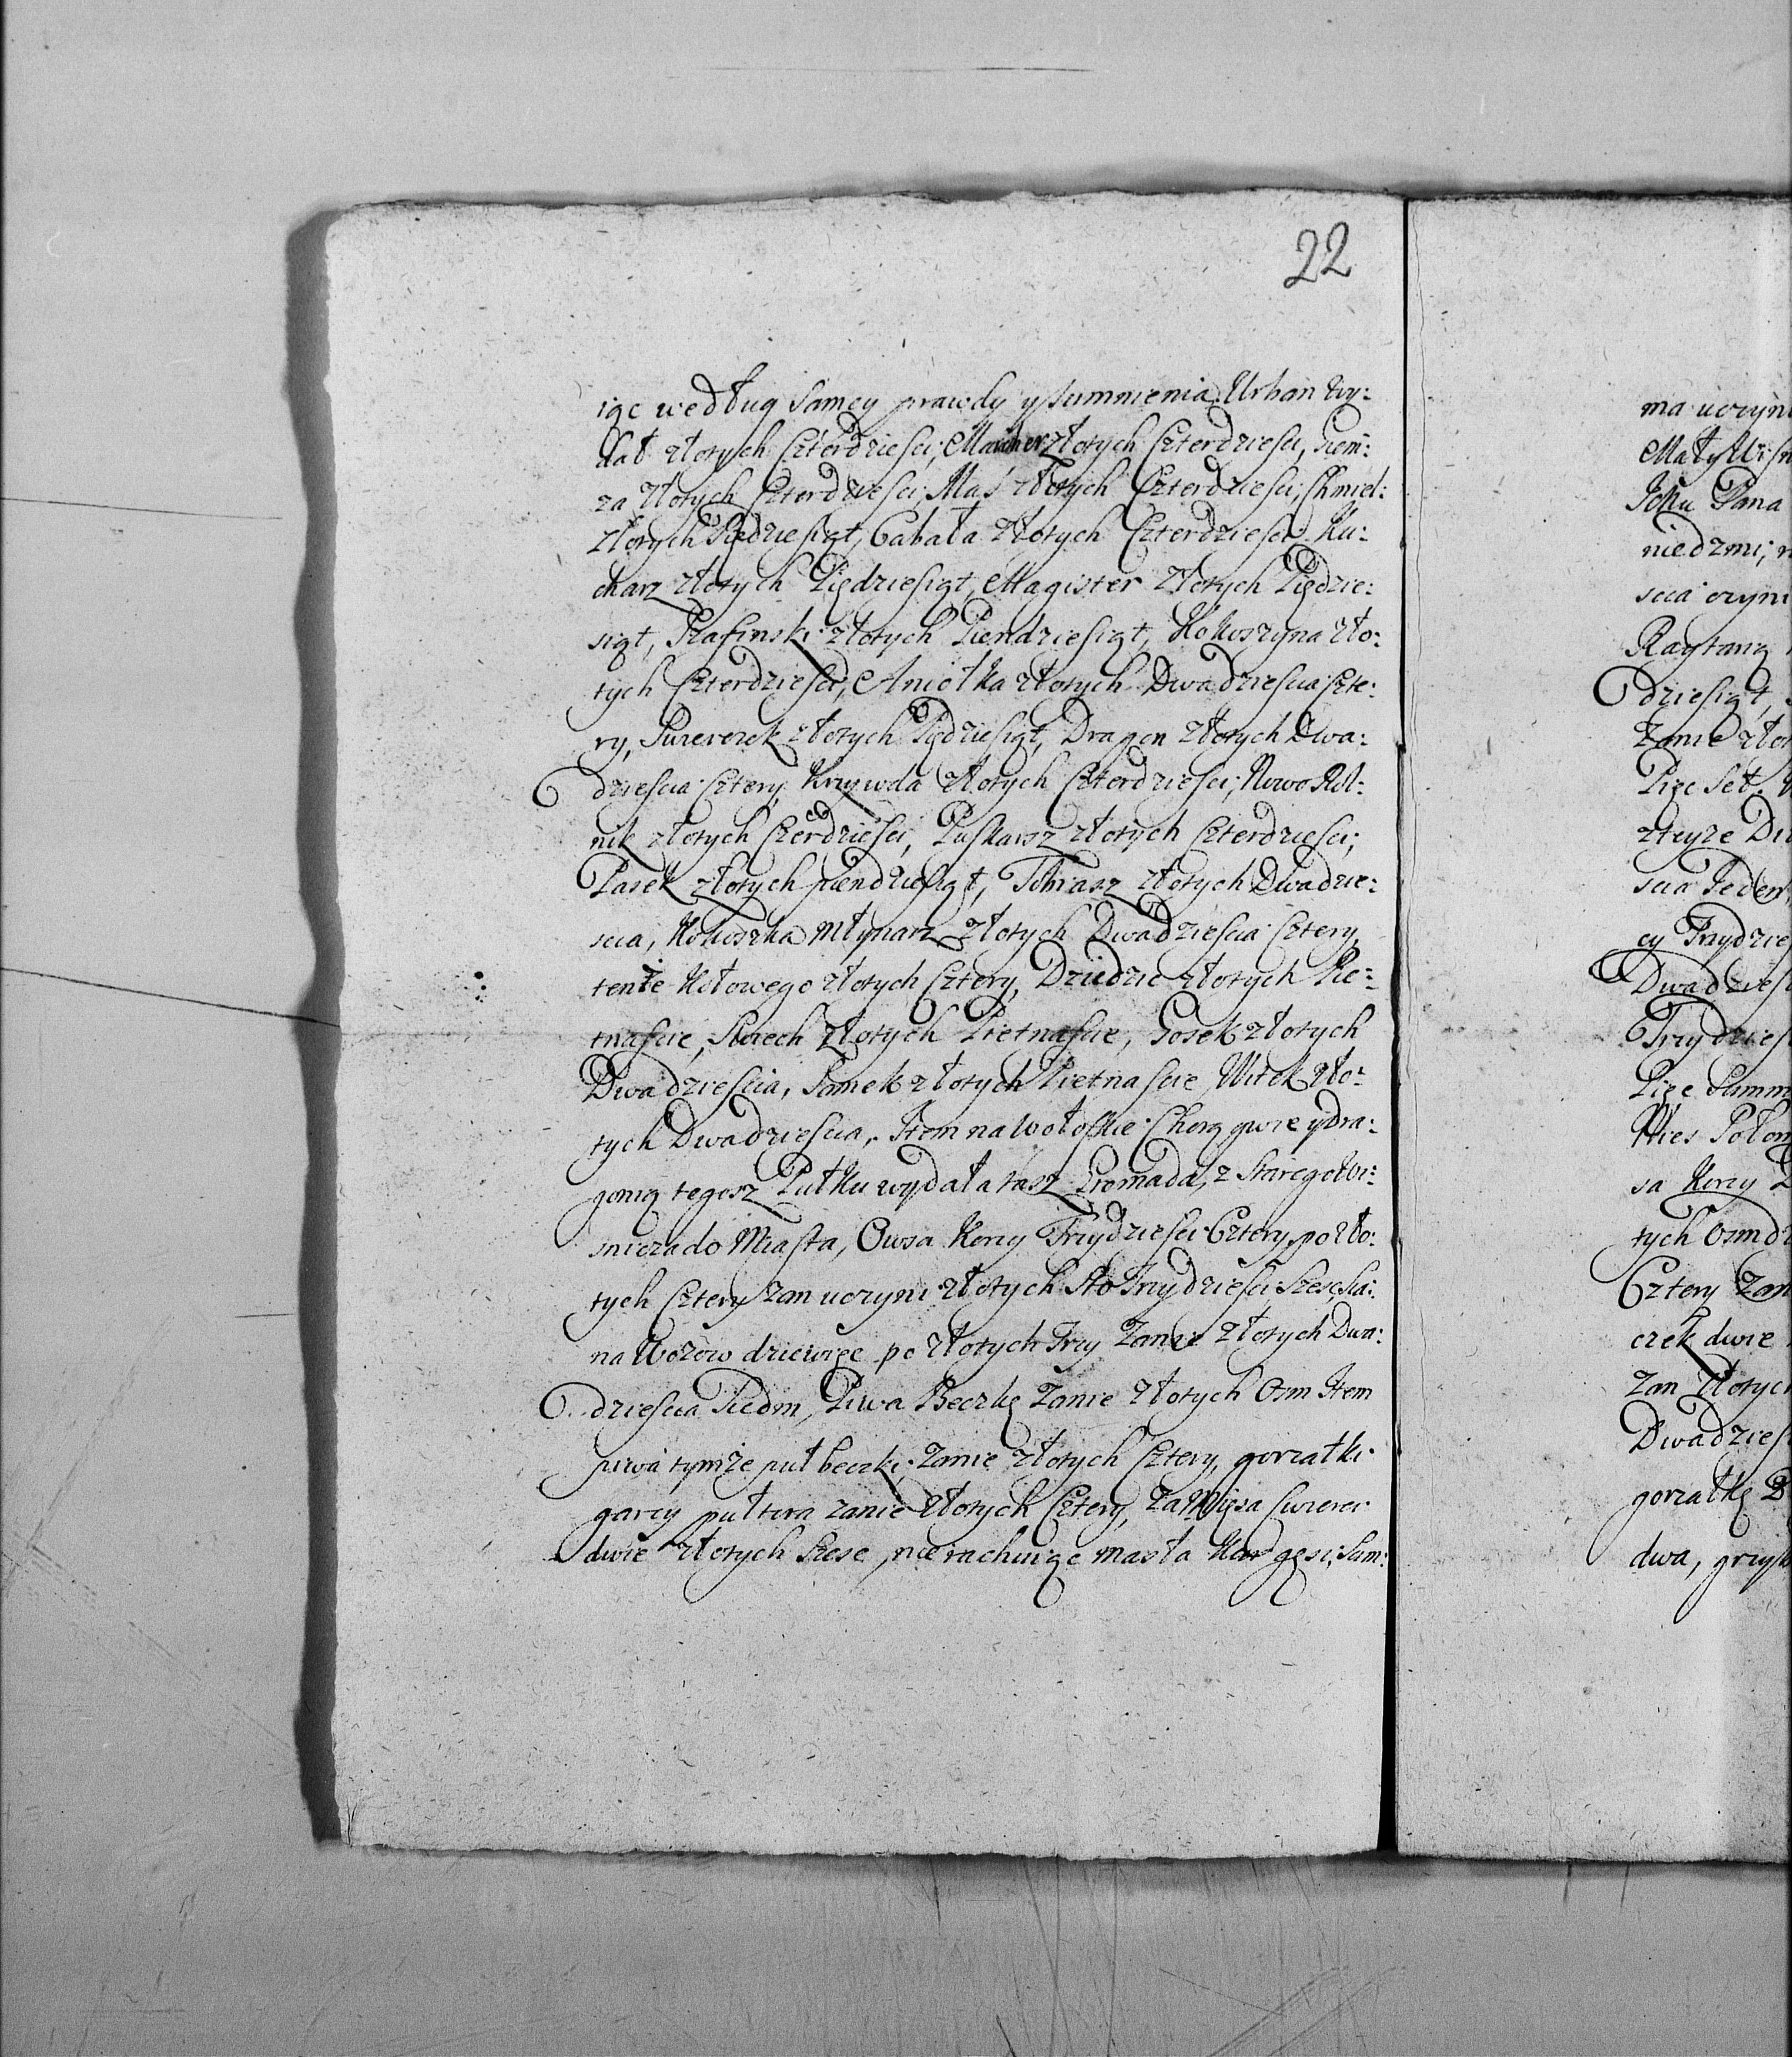 22
iąc według samey prawdy y sumnienia, Urban wy:
dał złotych Czterdziesci, złotych Czterdziesci,
za złotych Czterdziesci, Maś złotych Czterdziesci, Chmiel:
złotych Piędziesiąt, Gabała złotych Czterdziesci Ku:
charz złotych Piędziesiąt, Magister złotych Piędzie:
siąt, Szafinski złotych Piendziesiąt, Kokoszyna zło:
tych Czterdziesci, Aniołka złotych Dwadziescia czte:
ry, złotych Piędziesiąt, Dragon złotych Dwa:
dziescia cztery, Krzywda złotych Czterdziesci, Nowo Rol:
nik złotych Czterdziesci, Puskarsz złotych Czterdziesci;
Pasek złotych piendziesiąt, Tobiasz złotych Dwadzie:
scia, Kokoszka Młynarz złotych Dwadziescia Cztery,
tenże Kołowego złotych Cztery, Dziedzic złotych Pie:
tnascie, złotych Pietnascie, Gosek złotych
Dwadziescia, Samek złotych Pietnascie Witek zło:
tych Dwadziescia, Item na Wołoskie Chorągwie y Dra:
gonią tegosz Pułku wydała tasz Gromada, z Starego Wi:
snicza do Miasta, Owsa Korcy Trzydziesci Cztery, po zło:
tych Cztery zan uczyni złotych Sto Trzydziesci Szesc, Sia:
na Wozow dziewięc po złotych Trzy zanie złotych Dwa:
dziescia Siedm, Piwa Beczkę zanie złotych Osm Item
piwa tymże puł beczki, zanie złotych Cztery, gorzałki
garcy pułtora zanie złotych Cztery, za Mięsa cwierci
dwie złotych Szesc, nie rachuiąc masła Kur gęsi, Sum:
ma uczyni
Mały Wisn
Roku Pana
niedzmi,
scia czyni
Raytarią
dziesiąt,
zanie zło
Pięc Set
zteyze Dw
scia Jeden
cy Trzydzie
Dwadziesc
Trzydziesc
Pięc Summ
Wies Połom
sa Korcy
tych Osmdz
Cztery zan
czek dwie
zan złotych
Dwadziesc
gorzałkę
dwa, grzyb